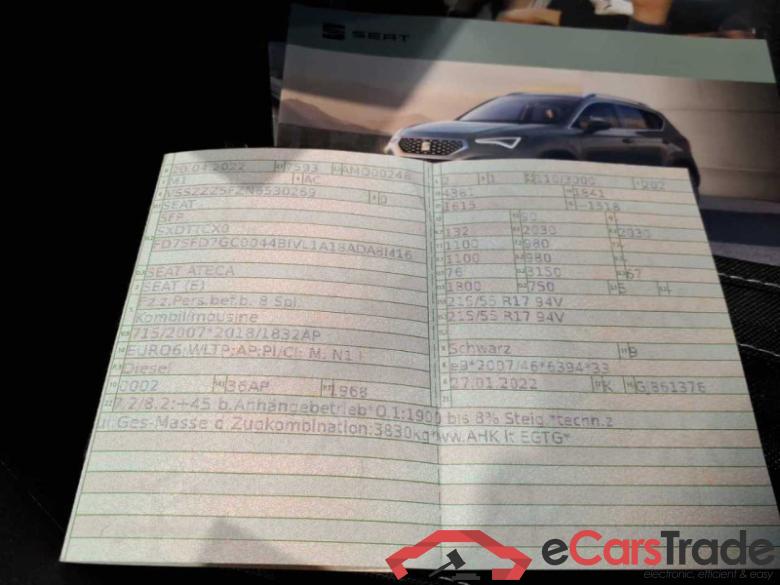 SEAT
20.04.2022 7593 AMD00246
M1 AC
VSSZZZ5FZN6530269 0
SEAT
5FP
SXDTTCX0
FD7SFD7GC0044BIVL1A18ADA8I416
SEAT ATECA
SEAT (E)
Fz.z.Pers.bef.b. 8 Spl.
Kombilimousine
715/2007*2018/1832AP
EURO6;WLTP;AP;PI/CI; M, N1 I
Diesel
0002 36AP 1968
2 1 110/3000 202
4381 1841
1615
90
132 2030 2030
1100 980
1100 980
76 3150 67
1800 750 5
215/55 R17 94V
215/55 R17 94V
Schwarz 9
e9*2007/46*6394*33
27.01.2022 K GJ861376
7.2/8.2:+45 b.Anhängebetrieb*O.1:1900 bis 8% Steig.*techn.z
ul.Ges-Masse d.Zugkombination:3830kg*ww.AHK lt EGTG*
eCarsTrade
electronic, efficient & easy